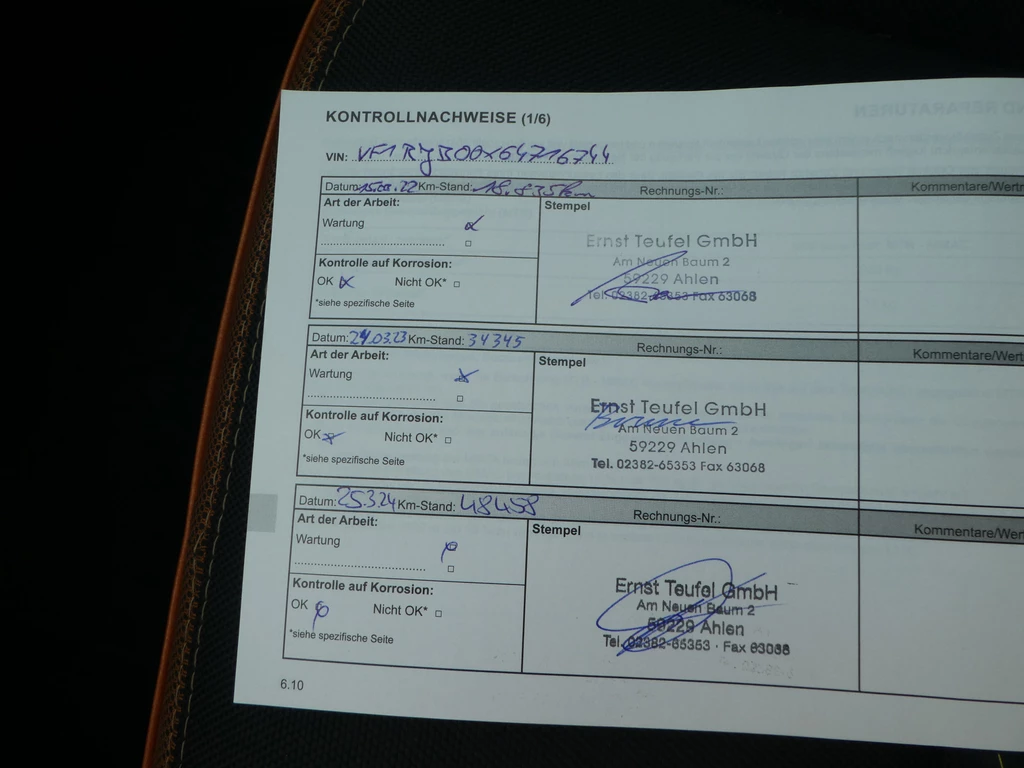 KONTROLLNACHWEISE (1/6)
VIN: VF1RJB00X64716744
Datum: 22 Km-Stand: 18.835km Rechnungs-Nr.: Kommentare/Wertm
Art der Arbeit: Stempel
Wartung
Ernst Teufel GmbH
Am Neuen Baum 2
59229 Ahlen
Tel. 02382-65353 Fax 63068
Kontrolle auf Korrosion:
OK Nicht OK*
*siehe spezifische Seite
Datum: 24.03.23 Km-Stand: 34345 Rechnungs-Nr.: Kommentare/Wert
Art der Arbeit: Stempel
Wartung
Ernst Teufel GmbH
Am Neuen Baum 2
59229 Ahlen
Tel. 02382-65353 Fax 63068
Kontrolle auf Korrosion:
OK Nicht OK*
*siehe spezifische Seite
Datum: 25.3.24 Km-Stand: 48458 Rechnungs-Nr.: Kommentare/Wert
Art der Arbeit: Stempel
Wartung
Ernst Teufel GmbH
Am Neuen Baum 2
59229 Ahlen
Tel. 02382-65353 · Fax 63068
Kontrolle auf Korrosion:
OK Nicht OK*
*siehe spezifische Seite
6.10